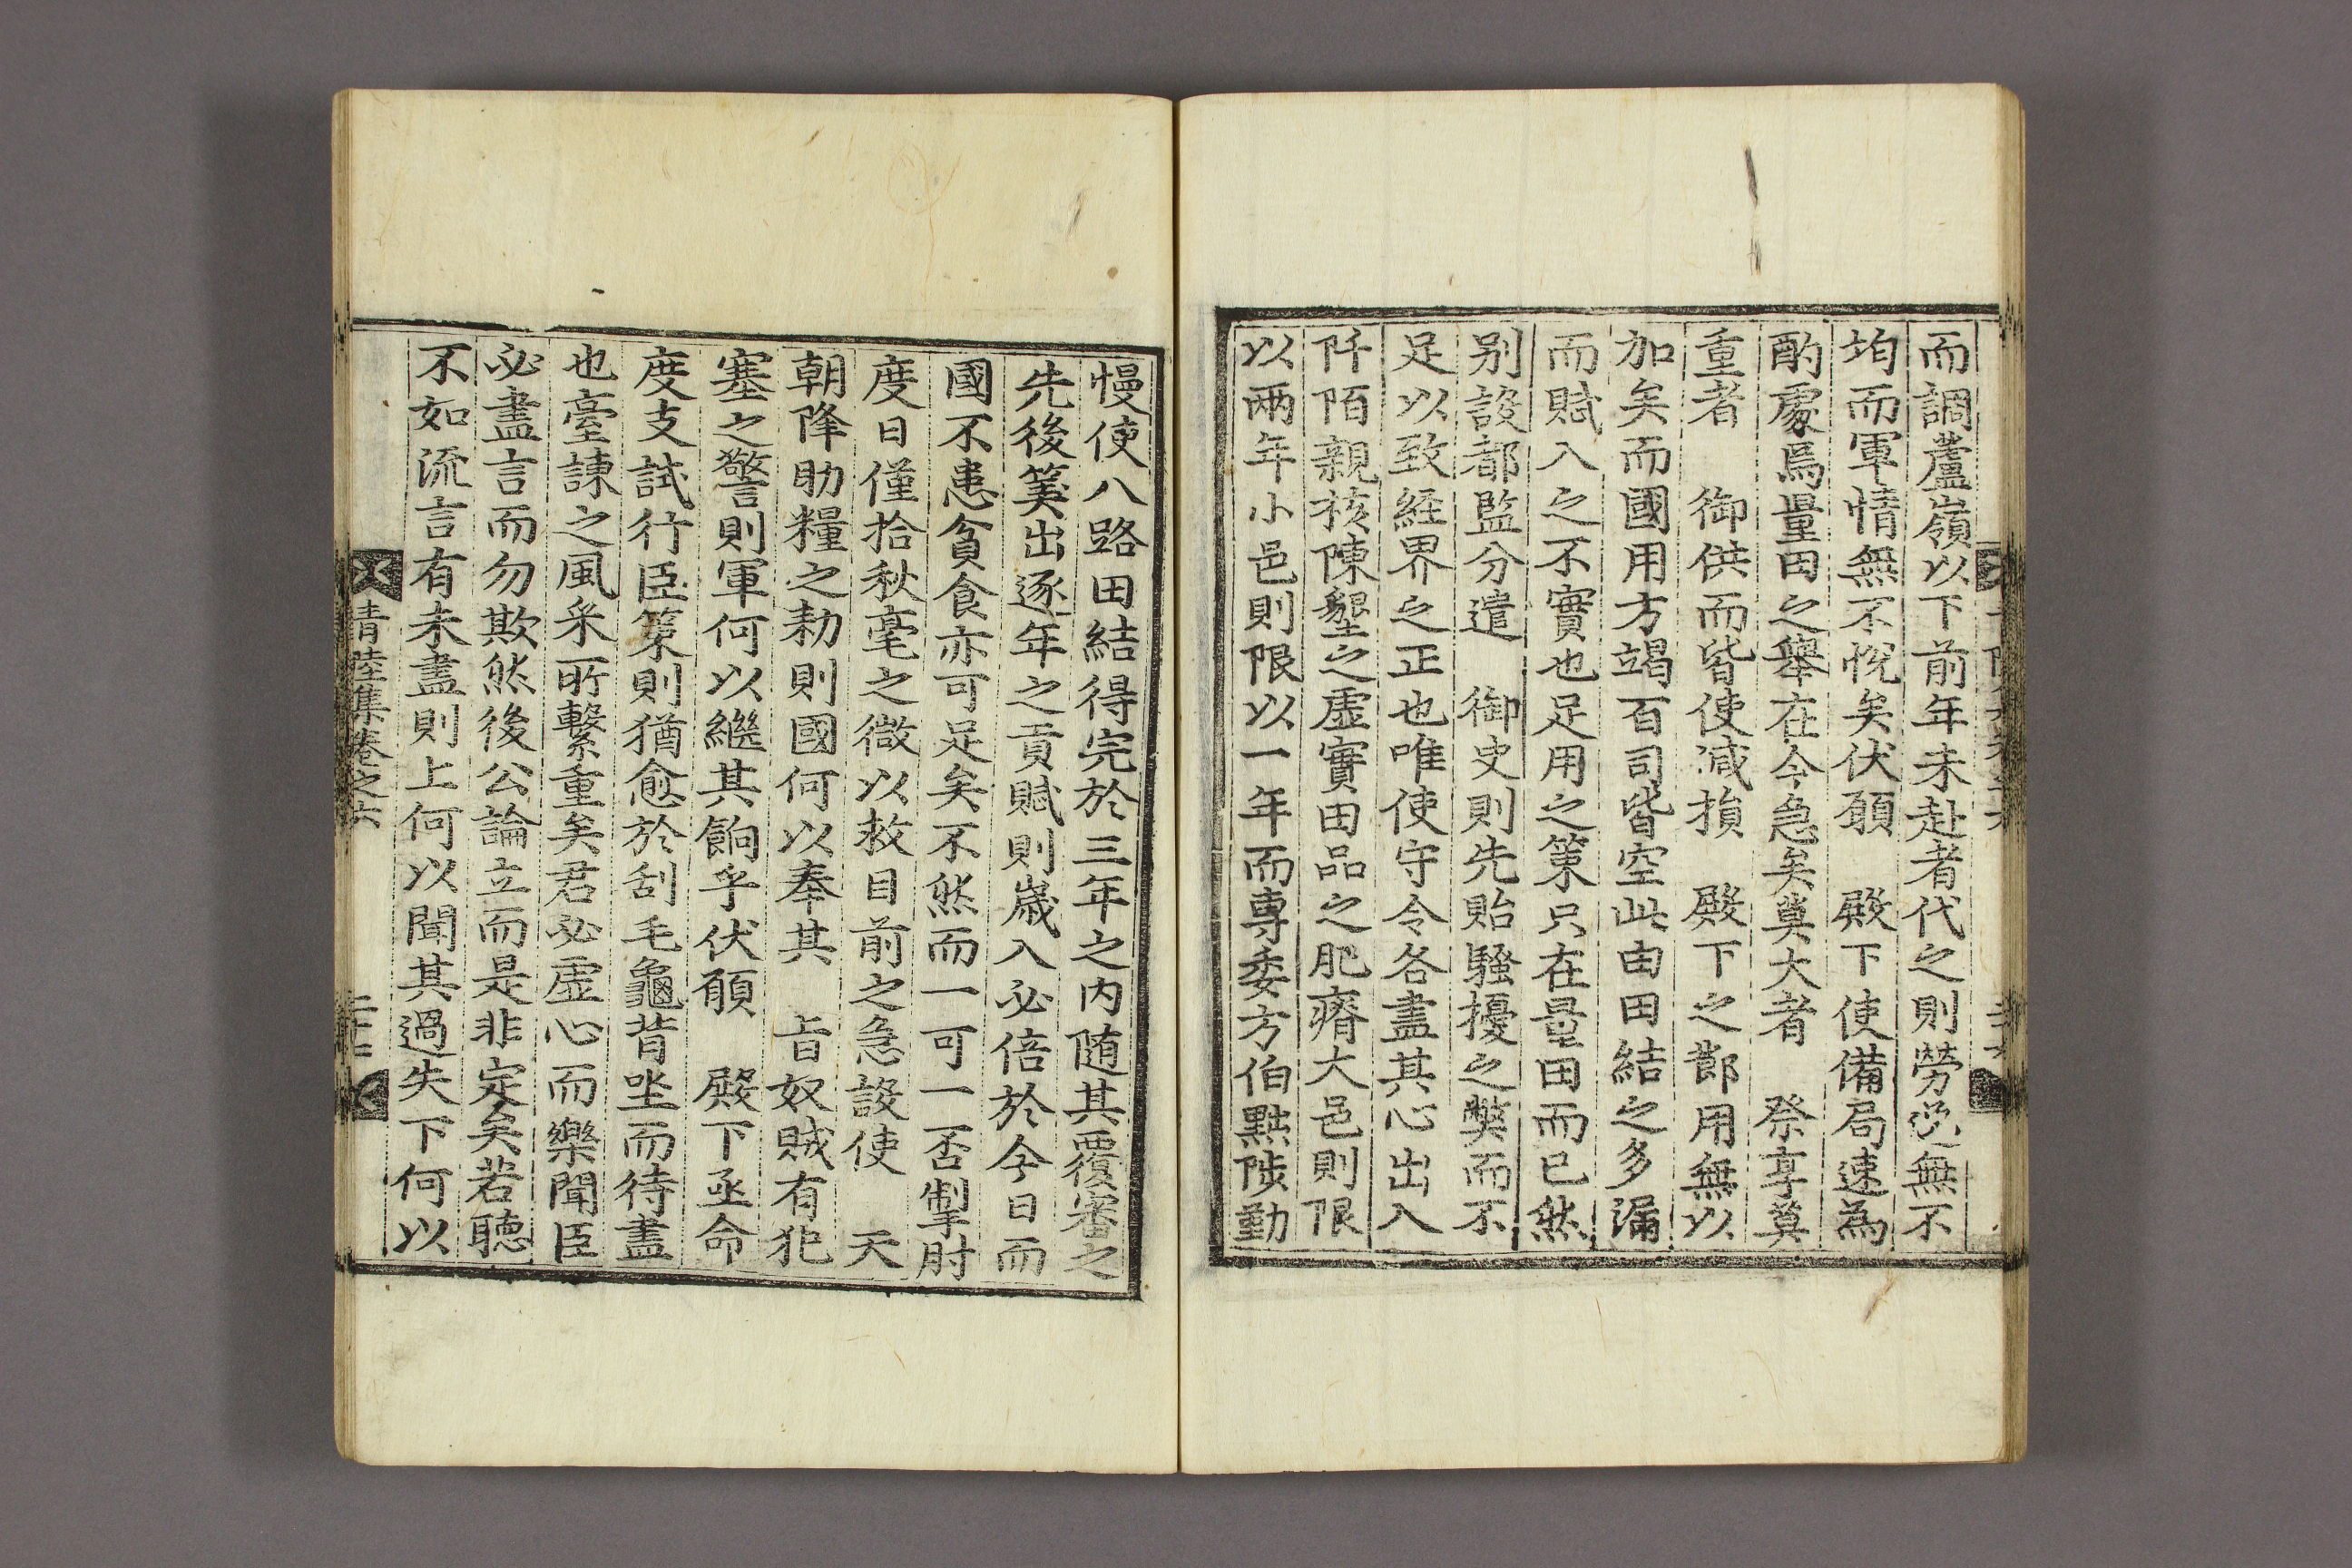 而調蘆嶺以下前年未赴者代之則勞逸無不
均而軍情無不悅矣伏願 殿下使備局速爲
酌處焉量田之擧在今急矣莫大者 祭享莫
重者 御供而皆使减損 殿下之鄷用無以
加矣而國用方竭百司皆空此由田結之多漏
而賦入之不實也足用之策只在量田而已然
别設都監分遣 御史則先貽騷擾之弊而不
足以致経界之正也唯使守令各盡其心出入
阡陌親核陳墾之虛實田品之肥瘠大邑則限
以兩年小邑則限以一年而專委方伯黜陟勤
慢使八路田結得完於三年之内随其覆審之
先後筭出逐年之貢賦則歲入必倍於今日而
國不患貧食亦可足矣不然而一可一否掣肘
度日僅拾秋毫之微以救目前之急設使 天
朝降助糧之勑則國何以奉其 旨奴賊有犯
塞之警則軍何以繼其餉乎伏願 殿下亟命
度支試行臣策則猶愈於刮毛龜背坐而待盡
也臺諫之風采所繫重矣君必虛心而樂聞臣
必盡言而勿欺然後公論立而是非定矣若聽
不如流言有未盡則上何以聞其過失下何以
青陸集卷之六